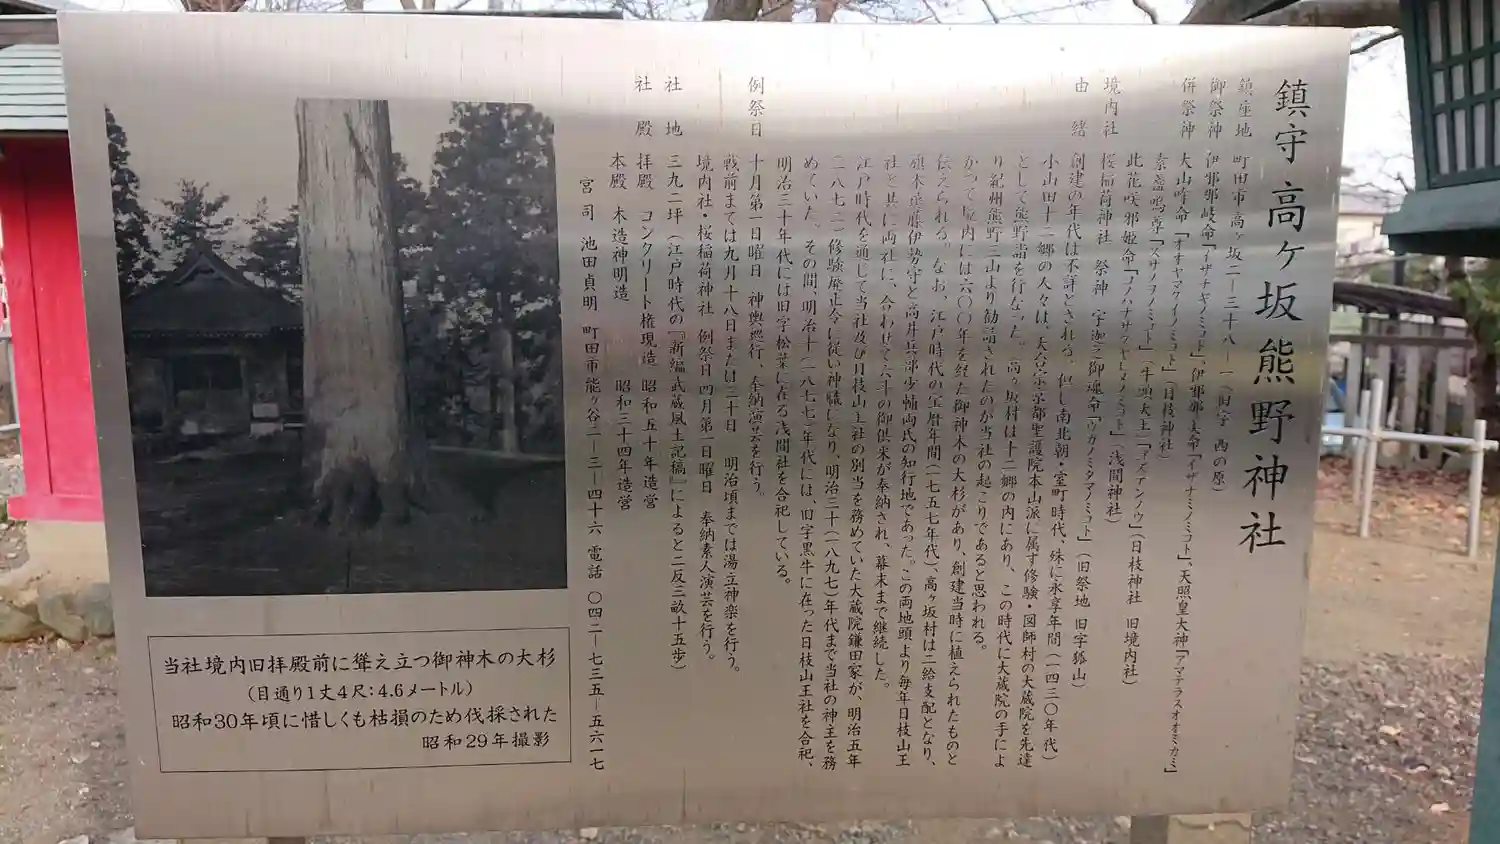 鎮守高ヶ坂熊野神社
鎮座地 町田市高ヶ坂二ー三十八ー一(旧字 西の原)
御祭神 伊邪那岐命「イザナギノミコト」、伊邪那美命「イザナミノミコト」、天照皇大神「アマテラスオオミカミ」
併祭神 大山咋命「オオヤマクイノミコト」(日枝神社)
素盞嗚尊「スサノヲノミコト」(牛頭天王)「ゴズテンノウ」(日枝神社 旧境内社)
此花咲邪姫命「コノハナサクヤヒメノミコト」(浅間神社)
境内社 桜稲荷神社 祭神 宇迦之御魂命「ウカノミタマノミコト」(旧祭地 旧字狐山)
由緒 創建の年代は不詳とされる。但し南北朝・室町時代、殊に永享年間(一四三〇年代)
小山田十二郷の人々は、天台宗京都聖護院本山派に属す修験・図師村の大蔵院を先達
として熊野詣を行なった。高ヶ坂村は十二郷の内にあり、この時代に大蔵院の手によ
り紀州熊野三山より勧請されたのが当社の起こりであると思われる。
かつて境内には六〇〇年を経た御神木の大杉があり、創建当時に植えられたものと
伝えられる。なお、江戸時代の宝暦年間(一七五七年代)、高ヶ坂村は二給支配となり、
旗本武藤伊勢守と高井兵部少輔両氏の知行地であった。この両地頭より毎年日枝山王
社と共に両社に、合わせて六斗の御供米が奉納され、幕末まで継続した。
江戸時代を通して当社及び日枝山王社の別当を務めていた大蔵院鎌田家が、明治五年
(一八七二)修験廃止令に従い神職になり、明治三十(一八九七)年代まで当社の神主を務
めていた。その間、明治十(一八七七)年代には、旧字黒牛に在った日枝山王社を合祀、
明治三十年代には旧字松葉に在る浅間社を合祀している。
例祭日 十月第一日曜日 神輿巡行、奉納演芸を行う。
戦前までは九月十八日または二十日 明治頃までは湯立神楽を行う。
境内社・桜稲荷神社 例祭日 四月第一日曜日 奉納素人演芸を行う。
社地 三九二坪(江戸時代の『新編武蔵風土記稿』によると二反三畝十五歩)
社殿 拝殿 コンクリート権現造 昭和五十年造営
本殿 木造神明造 昭和三十四年造営
宮司 池田貞明 町田市能ヶ谷二ー三ー四十六 電話 〇四二ー七三五ー五六一七
当社境内旧拝殿前に聳え立つ御神木の大杉
(目通り1丈4尺:4.6メートル)
昭和30年頃に惜しくも枯損のため伐採された
昭和29年撮影